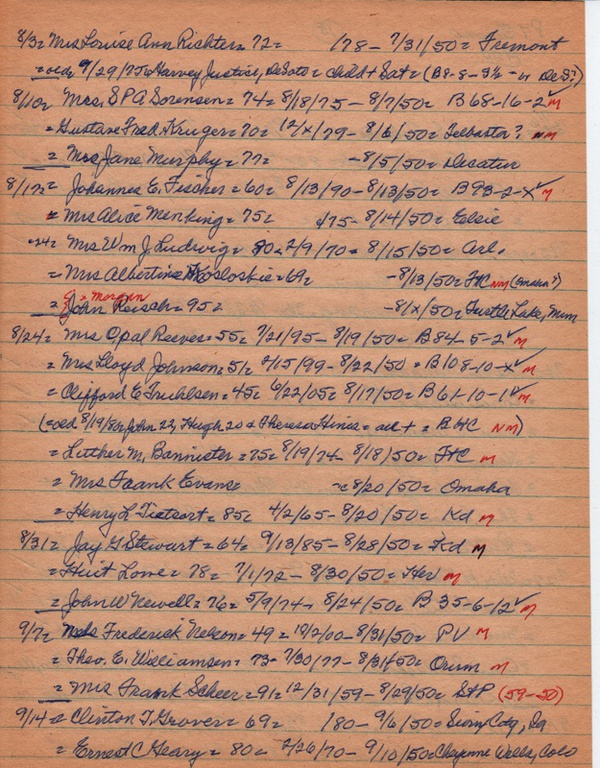 8/3= Mrs Louise Ann Richter= 72= /78 - 7/31/50= Fremont
= oed 9/29/75 Harvey Justice, DeSoto = child + Sat = (B8-8-9½ - or DeS?)
8/10= Mrs. SPA Sorensen = 74= 8/18/75 - 8/7/50= B 68-16-2✓ M
= Gustave Fred. Kruger= 70= 12/x/79 - 8/6/50= Telbasta? NM
= Mrs Jane Murphy= 77= - 8/5/50= Decatur
8/17= Johannes C. Fischer= 60= 8/13/90 - 8/13/50= B93-2-X✓ M
= Mrs Alice Menking= 75= /75 - 8/14/50= Elsie
-24= Mrs Wm J. Ludwig= 80= 2/9/70= 8/15/50= Arl.
= Mrs Albertina Kosloskie= 69= - 8/13/50= FtC NM (Omaha?)
= John Reisch= 95= - 8/x/50= Turtle Lake, Minn
= Morgan
8/24= Mrs Opal Reeves= 55= 7/21/95 - 8/19/50= B84-5-2✓ M
= Mrs Lloyd Johnson= 51= 2/15/99 - 8/22/50 = B108-10-X✓ M
= Clifford E Truhlsen= 45= 6/22/05= 8/17/50= B61-10-1✓ M
(= oed 8/19/80 John 22, Hugh 20 & Theresa Hines = all + = BHC NM)
= Luther M. Bannister= 75= 8/19/74 - 8/18/50= FtC M
= Mrs Frank Evans= - 8/20/50= Omaha
= Henry L Tietsort= 85= 4/2/65 - 8/20/50= Kd M
8/31= Jay G Stewart= 64= 9/13/85 - 8/28/50= Kd M
= Huit Lowe= 78= 7/1/72 - 8/30/50= Her M
= John W Newell= 76= 5/9/74 - 8/24/50= B 35-6-12✓ M
9/7= Mrs Frederick Nelson= 49= 10/2/00 - 8/31/50= PV M
= Theo. E. Williamsen= 73= 7/30/77 - 8/31/50= Orum M
= Mrs Frank Scheer= 91= 12/31/59 - 8/29/50= StP (59-50)
9/14= Clinton T. Grover= 69= /80 - 9/6/50= Sioux City, Ia
= Ernest C Geary= 80= 2/26/70 - 9/10/50= Cheyenne Wells, Colo